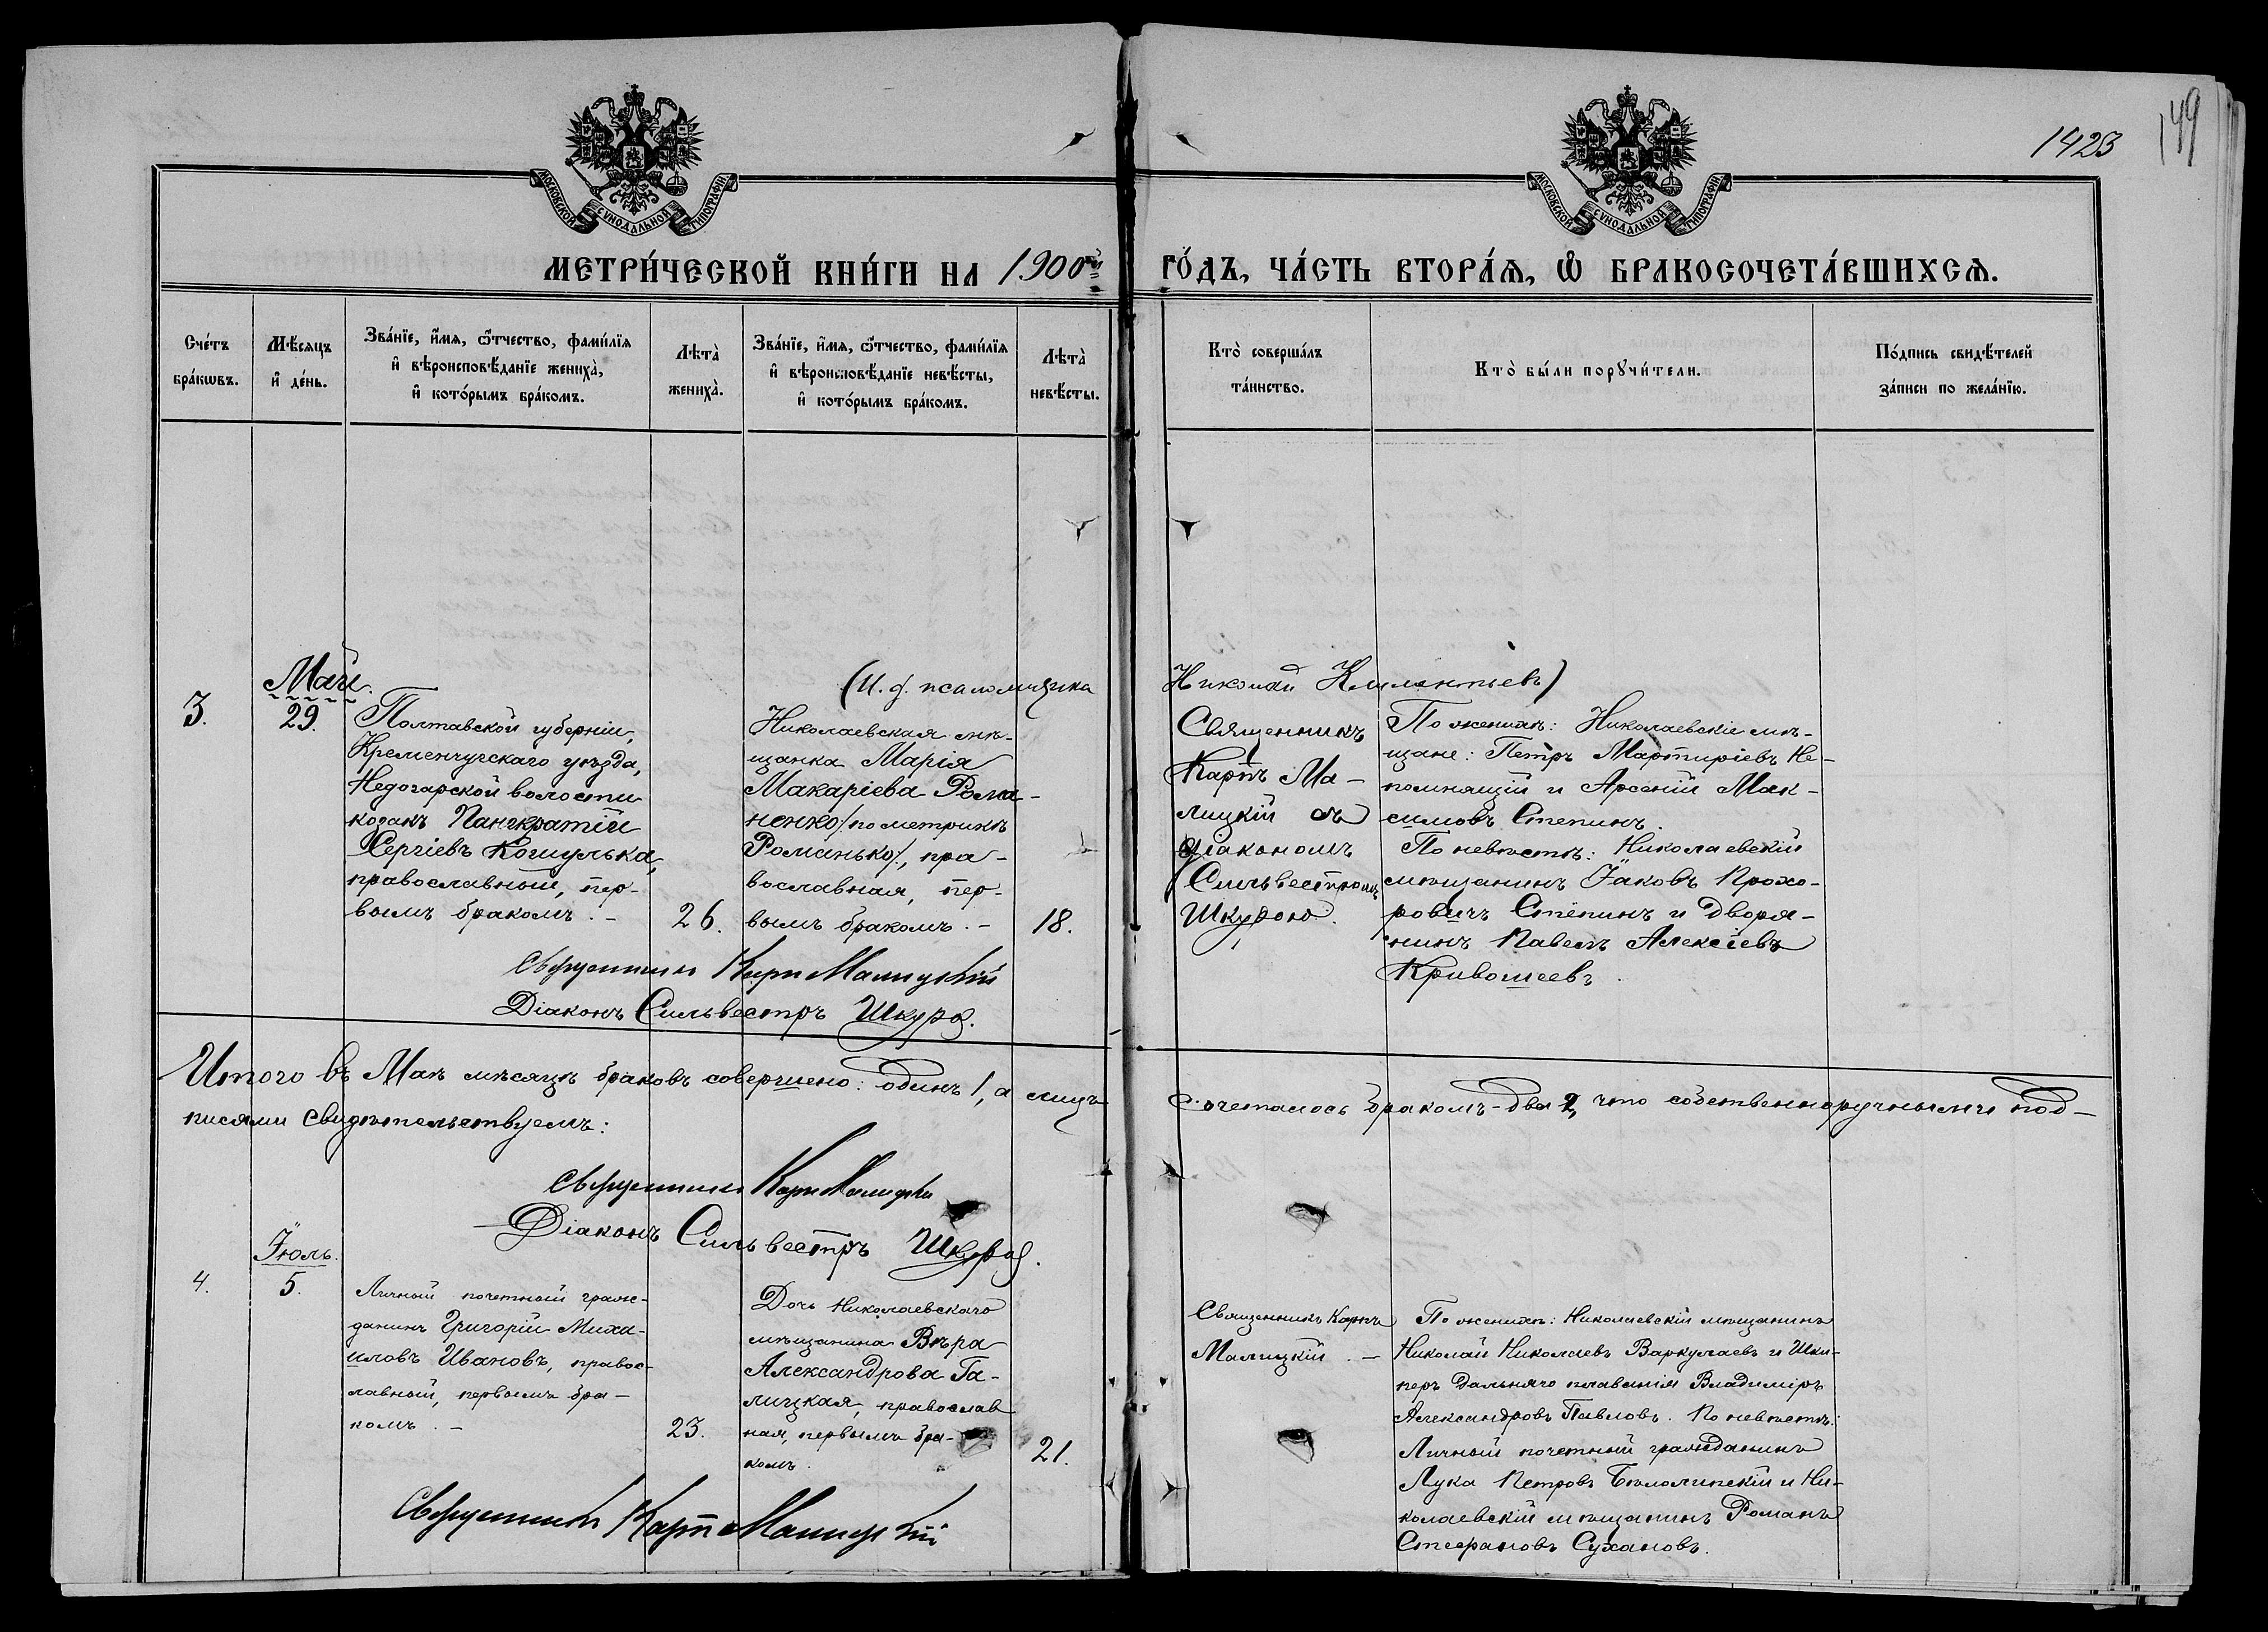 1423
149
МОСКОВСКОЙ СѴНОДАЛЬНОЙ ТИПОГРАФИИ
МОСКОВСКОЙ СѴНОДАЛЬНОЙ ТИПОГРАФИИ
МЕТРИ́ЧЕСКОЙ КНИ́ГИ НА 1900й ГО́ДЪ, ЧА́СТЬ ВТОРА́Я, Ѽ БРАКОСОЧЕТА́ВШИХСѦ.
Сче́тъ
бра́кѡвъ.
Мѣ́сяцъ
и҆ де́нь.
Зва́нїе, и҆́мѧ, ѻ҆́тчество, фами́лїѧ
и҆ вѣроисповѣ́данїе жениха̀,
и҆ кото́рымъ бра́комъ.
Лѣта̀
жениха̀.
Зва́нїе, и҆́мѧ, ѻ҆́тчество, фами́лїѧ
и҆ вѣроисповѣ́данїе невѣ́сты,
и҆ кото́рымъ бра́комъ.
Лѣта̀
невѣ́сты.
Кто̀ соверша́лъ
та́инство.
Кто̀ бы́ли порꙋчи́тели.
По́дпись свидѣ́телей
за́писи по жела́нїю.
(И. д. псаломщика Николай Климентьевъ)
3.
Май.
29.
Полтавской губерніи,
Кременчугскаго уѣзда,
Недогарской волости
козакъ Панкратій
Сергіевъ Кошулька,
православный, пер-
вымъ бракомъ. -
26.
Николаевская мѣ-
щанка Марія
Макаріева Рома-
ненко /по метрикѣ
Романько/, пра-
вославная, пер-
вымъ бракомъ. -
18.
Священникъ
Карпъ Ма-
лицкій съ
діакономъ
Сильвестромъ
Шкурою.
По женихѣ: Николаевскіе мѣ-
щане: Петръ Мартиріевъ Не-
помнящій и Арсеній Мак-
симовъ Степинъ.
По невѣстѣ: Николаевскій
мѣщанинъ Іаковъ Прохо-
ровичъ Степинъ и дворя-
нинъ Павелъ Алексіевъ
Кривошеевъ.
Священникъ Карпъ Малицкій
Діаконъ Сильвестръ Шкура.
Итого въ Маѣ мѣсяцѣ браковъ совершено: одинъ 1, а лицъ сочеталось бракомъ - два 2, что собственноручными под-
писями свидѣтельствуемъ:
Священникъ Карпъ Малицкій
Діаконъ Сильвестръ Шкура.
4.
Іюль.
5.
Личный почетный граж-
данинъ Григорій Миха-
иловъ Ивановъ, правос-
лавный, первымъ бра-
комъ. -
23.
Дочь Николаевскаго
мѣщанина Вѣра
Александрова Га-
лицкая, православ
ная, первымъ бра-
комъ.
21.
Священникъ Карпъ
Малицкій. -
По женихѣ: Николаевскій мѣщанинъ
Николай Николаевъ Варкулаевъ и Шки-
перъ дальняго плаванія Владиміръ
Александровъ Павловъ. По невѣстѣ:
Личный почетный гражданинъ
Лука Петровъ Бѣлолипскій и Ни-
колаевскій мѣщанинъ Романъ
Стефановъ Сухановъ.
Священникъ Карпъ Малицкій